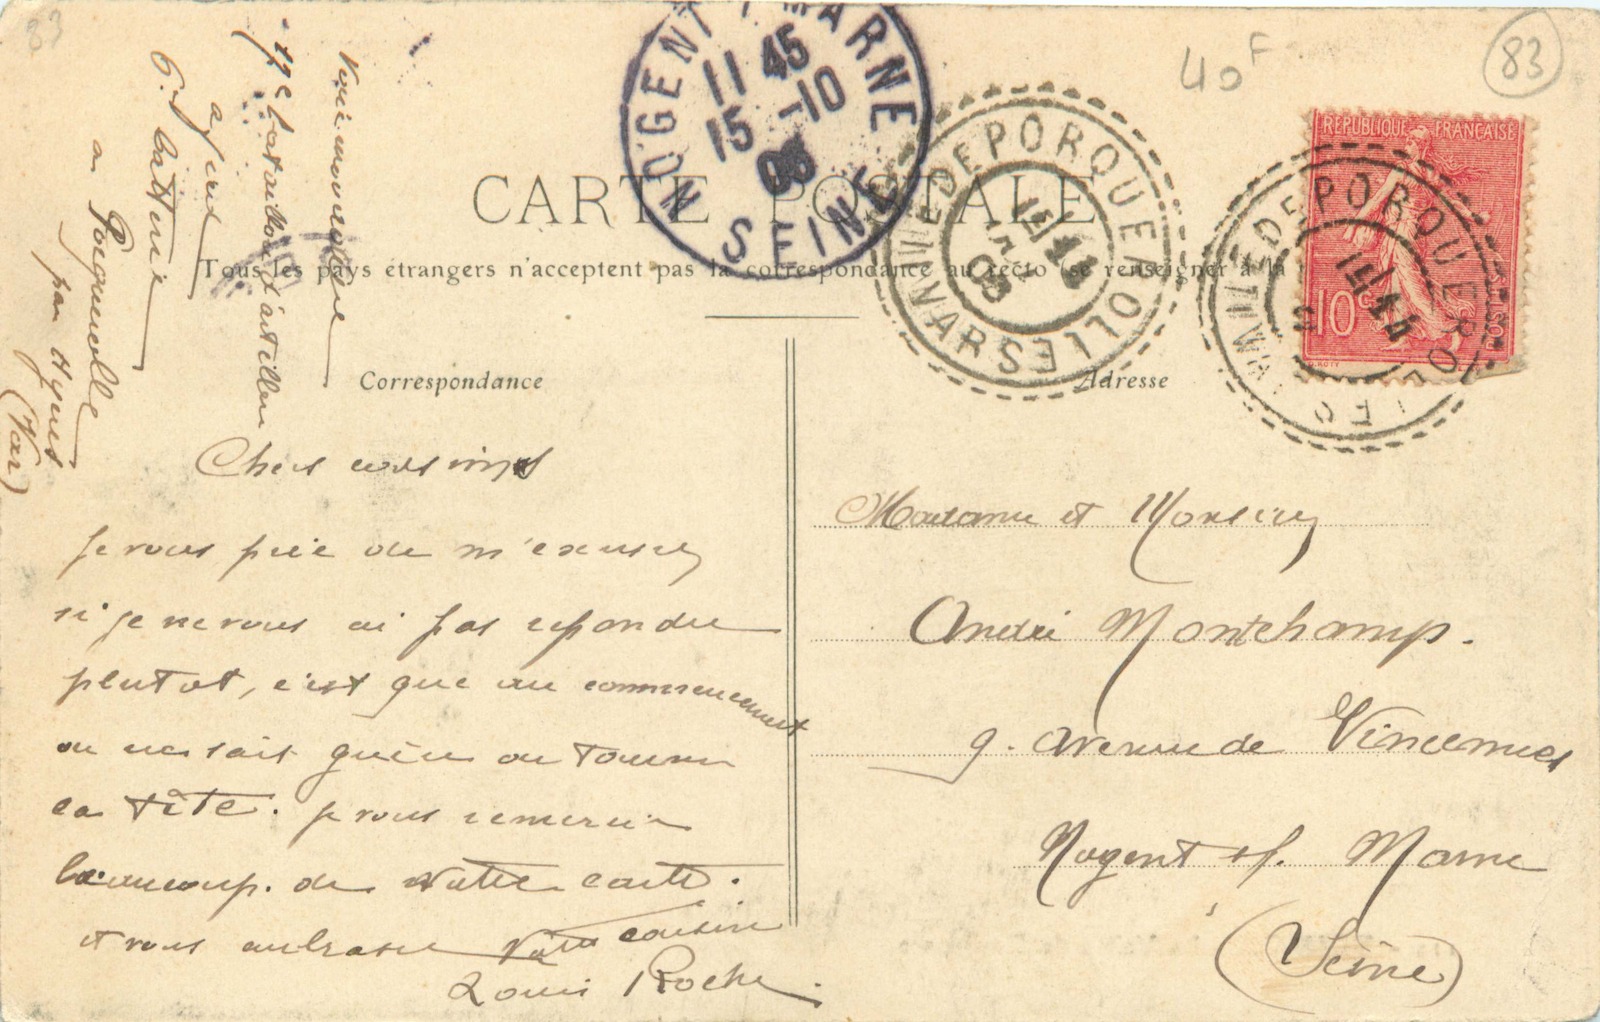 83
40F
83
REPUBLIQUE FRANÇAISE
10c
NOGENT S MARNE
11 45
15 -10
08
SEINE
ILE DE PORQUEROLLES
VAR
ILE DE PORQUEROLLES
CARTE POSTALE
Tous les pays étrangers n'acceptent pas la correspondance au recto (se renseigner à la
Correspondance
Adresse
Voici mon adresse
7e bataillon d'artillerie
a pied
6e batterie
a Porquerolle
par Hyeres
(Var)
Chers cousins
Je vous prie de m'excuser
si je ne vous ai pas repondu
plutot, c'est que au commencement
on ne sait guère ou tourner
la tête. Je vous remercie
beaucoup. de votre carte.
et vous embrasse Votre cousin
Louis Roche.
Madame et Monsieur
André Montchamp.
9. avenue de Vincennes
Nogent s/. Marne
(Seine)